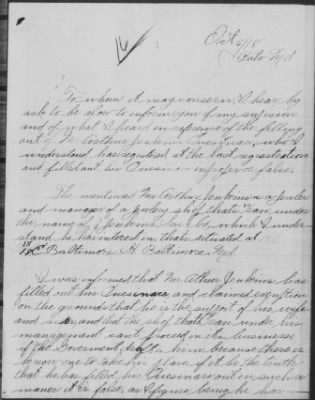 16
Oct 6/18
Balto Md
To whom it may concern, I hear by
ask to be alow to inform you of my
and of what I heard in referance of the filling
out of Mr Arthur Jenkins Cuesignar, who I
understand has registered at the last registeration
and filled out his false.
The mentined Mr Arthur Jenkins is a
and manager of a shop that's ran under
the name of Jenkins Son Co, which I under-
stand he has interest in thats situated at
18 E. Baltimore St Baltimore Md.
I was informed that Mr Arthur Jenkins has
filled out his and claimed exemption
on the grounds that he is the support of his wife
and and that the shop thats ran under his
management cant proceed on the business
of the Goverment with him because there is
no one to take his place, if it be the truth
that he has filled his out in such a
maner it is false, as I figure being he has